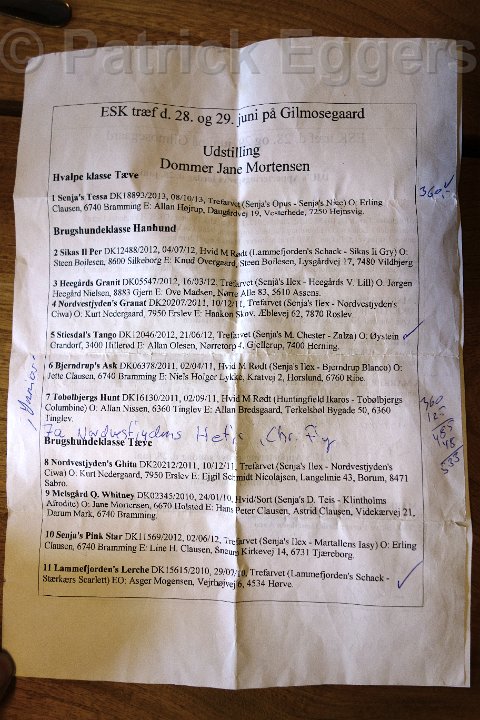 © Patrick Eggers
ESK træf d. 28. og 29. juni på Gilmosegaard
Udstilling
Dommer Jane Mortensen
Hvalpe klasse Tæve
360,-
1 Senja's Tessa DK18893/2013, 08/10/13, Trefarvet (Senja's Opus - Senja's Nice) O: Erling
Clausen, 6740 Bramming E: Allan Højrup, Daugårdvej 19, Vesterhede, 7250 Hejnsvig.
Brugshundeklasse Hanhund
2 Sikas Il Per DK12488/2012, 04/07/12, Hvid M Rødt (Lammefjorden's Schack - Sikas Ii Gry) O:
Steen Boilesen, 8600 Silkeborg E: Knud Overgaard, Steen Boilesen, Lysgårdvej 17, 7480 Vildbjerg
3 Heegårds Granit DK05547/2012, 16/03/12, Trefarvet (Senja's Ilex - Heegårds V. Lill) O: Jørgen
Heegård Nielsen, 8883 Gjern E: Ove Madsen, Nørre Alle 83, 5610 Assens.
4 Nordvestjyden's Granat DK20207/2011, 10/12/11, Trefarvet (Senja's Ilex - Nordvestjyden's
Ciwa) O: Kurt Nedergaard, 7950 Erslev E: Haakon Skov, Æblevej 62, 7870 Roslev
5 Sticsdal's Tango DK12046/2012, 21/06/12, Trefarvet (Senja's M. Chester - Zalza) O: Øystein
Crandorf, 3400 Hillerød E: Allan Olesen, Nørretorp 4, Gjellerup, 7400 Herning.
6 Bjerndrup's Ask DK06378/2011, 02/04/11, Hvid M Rødt (Senja's Ilex - Bjerndrup Blanco) O:
Jette Clausen, 6740 Bramming E: Niels Holger Lykke, Kratvej 2, Horslund, 6760 Ribe.
7 Tobølbjergs Hunt DK16130/2011, 02/09/11, Hvid M Rødt (Huntingfield Ikaros - Tobølbjergs
Columbine) O: Allan Nissen, 6360 Tinglev E: Allan Bredsgaard, Terkelsbøl Bygade 50, 6360
Tinglev.
360
125
485
48
533
7a Nordvestjydens Chr. Fly
Brugshundeklasse Tæve
8 Nordvestjyden's Ghita DK20212/2011, 10/12/11, Trefarvet (Senja's Ilex - Nordvestjyden's
Ciwa) O: Kurt Nedergaard, 7950 Erslev E: Ejgil Schmidt Nicolajsen, Langelinie 43, Borum, 8471
Sabro.
9 Melsgård Q. Whitney DK02345/2010, 24/01/10, Hvid/Sort (Senja's D. Teis - Klintholms
Afrodite) O: Jane Mortensen, 6670 Holsted E: Hans Peter Clausen, Astrid Clausen, Videkærvej 21,
Darum Mark, 6740 Bramming.
10 Senja's Pink Star DK11569/2012, 02/06/12, Trefarvet (Senja's Ilex - Martallens Iasy) O: Erling
Clausen, 6740 Bramming E: Line H. Clausen, Sneum Kirkevej 14, 6731 Tjæreborg.
11 Lammefjorden's Lerche DK15615/2010, 29/07/10, Trefarvet (Lammefjorden's Schack -
Stærkærs Scarlett) EO: Asger Mogensen, Vejrhøjvej 6, 4534 Hørve.